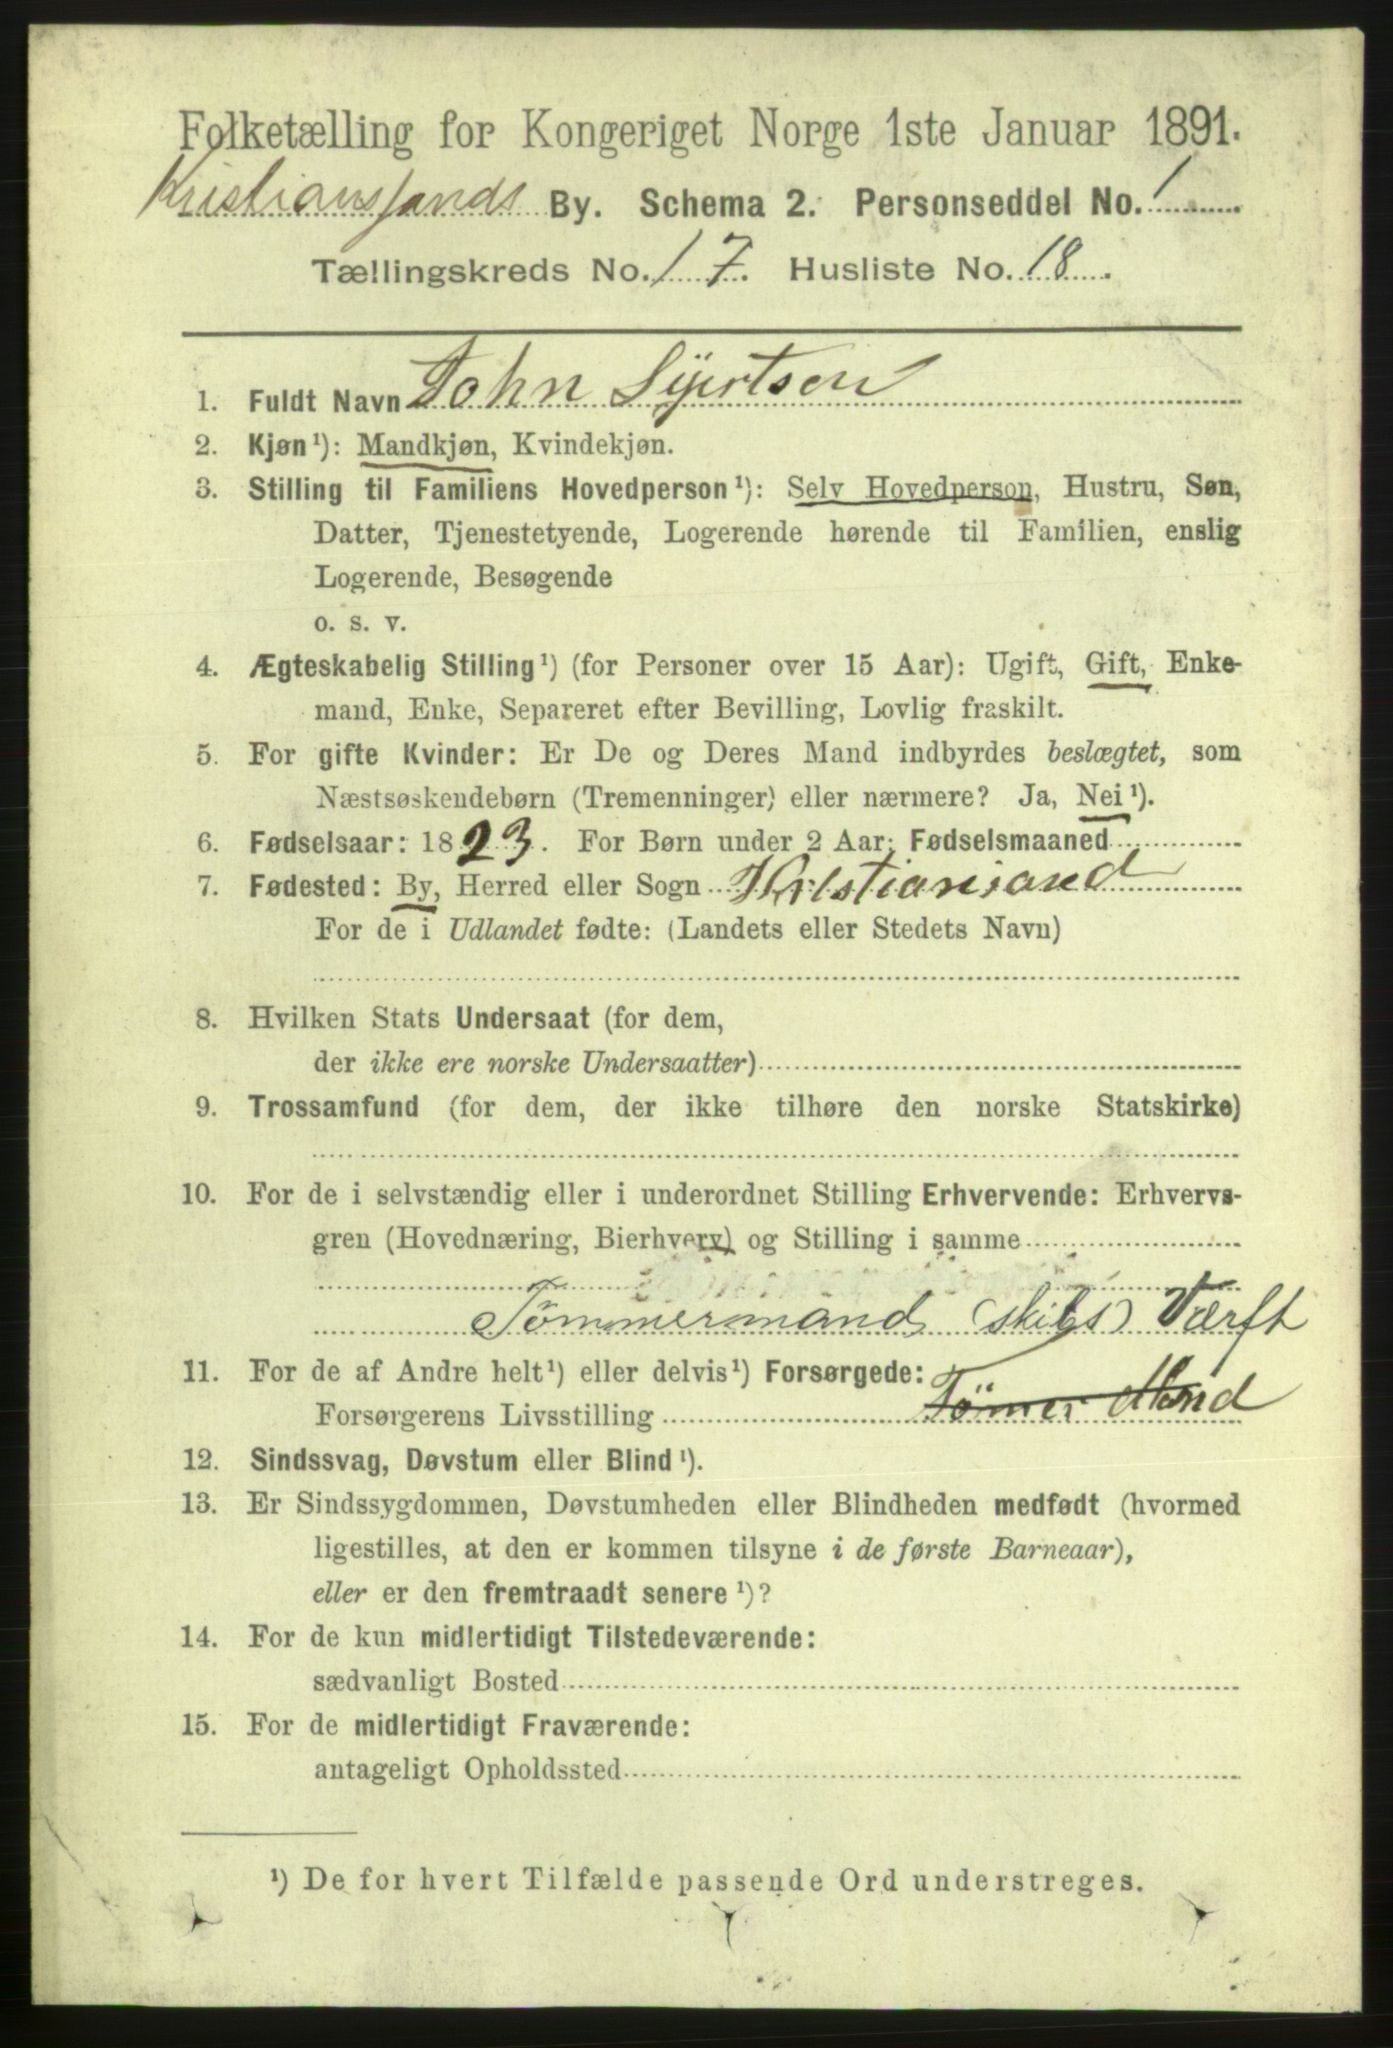 Folketælling for Kongeriget Norge 1ste Januar 1891.
Kristianssands By. Schema 2. Personseddel No. 1
Tællingskreds No. 17. Husliste No. 18.
1. Fuldt Navn John Syvertsen
2. Kjøn¹): Mandkjøn, Kvindekjøn.
3. Stilling til Familiens Hovedperson¹): Selv Hovedperson, Hustru, Søn,
Datter, Tjenestetyende, Logerende hørende til Familien, enslig
Logerende, Besøgende
o. s. v.
4. Ægteskabelig Stilling¹) (for Personer over 15 Aar): Ugift, Gift, Enke-
mand, Enke, Separeret efter Bevilling, Lovlig fraskilt.
5. For gifte Kvinder: Er De og Deres Mand indbyrdes beslægtet, som
Næstsøskendebørn (Tremenninger) eller nærmere? Ja, Nei¹).
6. Fødselsaar: 1823. For Børn under 2 Aar: Fødselsmaaned
7. Fødested: By, Herred eller Sogn Kristiansand
For de i Udlandet fødte: (Landets eller Stedets Navn)
8. Hvilken Stats Undersaat (for dem,
der ikke ere norske Undersaatter)
9. Trossamfund (for dem, der ikke tilhøre den norske Statskirke)
10. For de i selvstændig eller i underordnet Stilling Erhvervende: Erhvervs-
gren (Hovednæring, Bierhverv) og Stilling i samme
Tømmermand (skibs) Værft
11. For de af Andre helt¹) eller delvis¹) Forsørgede:
Forsørgerens Livsstilling Tömer Mand
12. Sindssvag, Døvstum eller Blind¹).
13. Er Sindssygdommen, Døvstumheden eller Blindheden medfødt (hvormed
ligestilles, at den er kommen tilsyne i de første Barneaar),
eller er den fremtraadt senere¹)?
14. For de kun midlertidigt Tilstedeværende:
sædvanligt Bosted
15. For de midlertidigt Fraværende:
antageligt Opholdssted
¹) De for hvert Tilfælde passende Ord understreges.